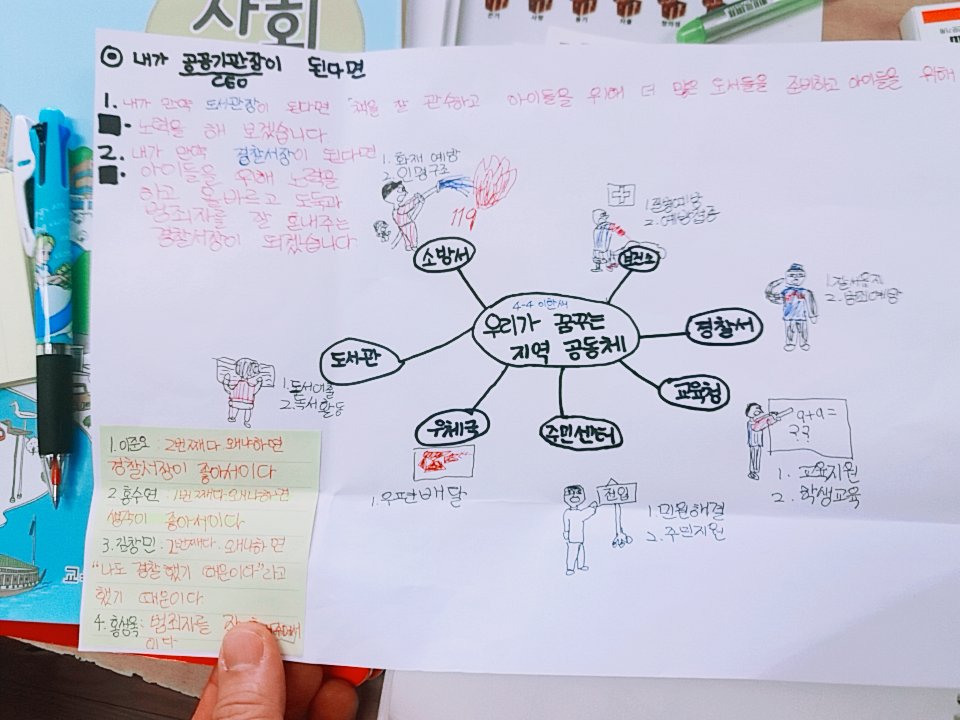 사회
◎ 내가 공공기관장이 된다면
CEO
1. 내가 만약 도서관장이 된다면 책을 잘 관수하고 아이들을 위해 더 많은 도서들을 준비하고 아이들을 위해
노력을 해 보겠습니다.
2. 내가 만약 경찰서장이 된다면
아이들을 위해 노력을
하고 올바르고 도둑과
범죄자를 잘 혼내주는
경찰서장이 되겠습니다
1. 화재 예방
2. 인명구조
119
소방서
2. 예방접종
보건소
4-4
우리가 꿈꾸는
지역 공동체
1. 질서유지
2. 범죄예방
경찰서
교육청
9+9=
??
1. 교육지원
2. 학생교육
주민센터
전입
1. 민원해결
2. 주민지원
우체국
1. 우편배달
도서관
1. 도서대출
2. 독서활동
1. 이준오: 2번째다 왜냐하면
경찰서장이 좋아서이다
2. 홍수연: 1번째다 왜냐하면
생각이 좋아서이다
3. 김창민: 2번째다. 왜냐하면
"나도 경찰 했기 때문이다"라고
했기 때문이다.
4. 홍상욱: 범죄자를
이다